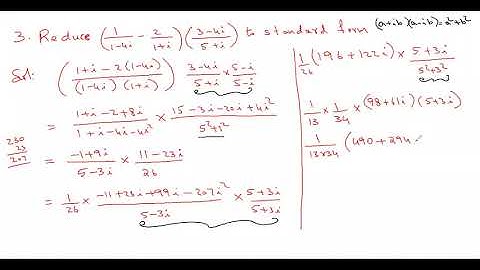 3. Reduce (1/(1-4i) - 2/(1+i)) ((3-4i)/(5+i)) to standard form (a+ib)(a-ib)=a²+b²
Sol: ((1+i-2(1-4i))/((1-4i)(1+i))) (3-4i)/(5+i) × (5-i)/(5-i)
= (1+i-2+8i)/(1+i-4i-4i²) × (15-3i-20i+4i²)/(5²+i²)
230
23
207
= (-1+9i)/(5-3i) × (11-23i)/26
= 1/26 × (-11+23i+99i-207i²)/(5-3i) × (5+3i)/(5+3i)
1/26 (196+122i) × (5+3i)/(5²+3²)
1/13 × 1/34 × (98+61i)(5+3i)
1/(13×34) (490+294